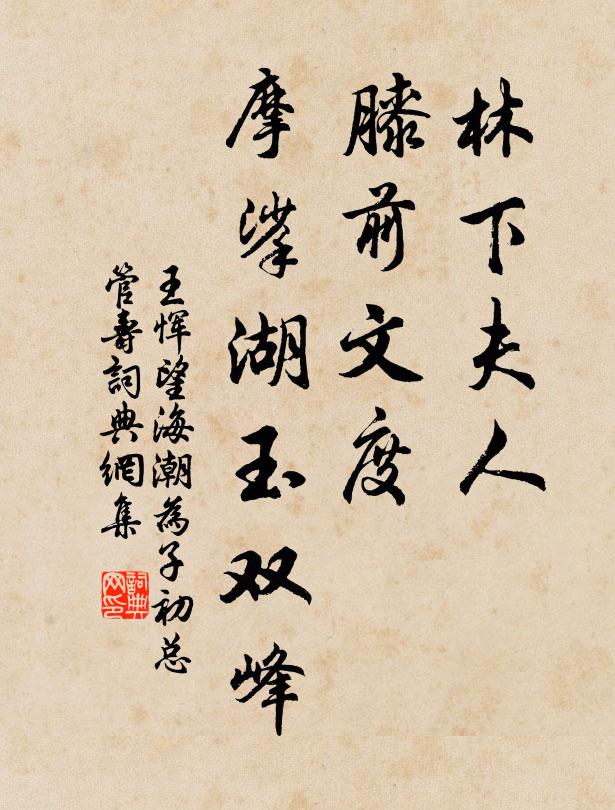 林下夫人
膝前文度
摩挲湖玉双峰
王恽望海潮為子初总
管壽詞典網集
詞典网印